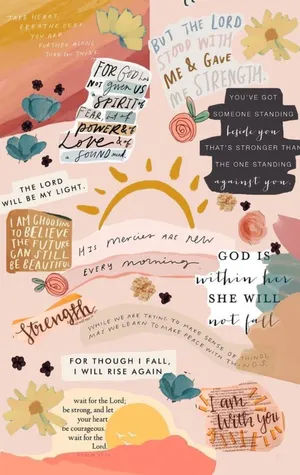 TAKE HEART,
BREATHE DEEP.
YOU ARE
FURTHER ALONG
THAN YOU THINK.
BUT THE LORD
STOOD WITH
ME & GAVE
ME STRENGTH.
FOR GOD HAS
NOT given US
A SPIRIT of
FEAR, but of
POWER & of
Love & of
a SOUND mind.
YOU'VE GOT
SOMEONE STANDING
beside you
THAT'S STRONGER THAN
THE ONE STANDING
against you.
THE LORD
WILL BE MY LIGHT.
I AM CHOOSING
TO BELIEVE
THE FUTURE
CAN STILL
BE BEAUTIFUL
HIS MERCIES ARE NEW
EVERY MORNING.
GOD IS
within her
SHE WILL
not fall
Strength
WHILE WE ARE TRYING TO MAKE SENSE OF THINGS,
MAY WE LEARN TO MAKE PEACE WITH THINGS.
FOR THOUGH I FALL,
I WILL RISE AGAIN
wait for the Lord;
be strong, and let
your heart
be courageous.
wait for the
Lord.
I am
With you